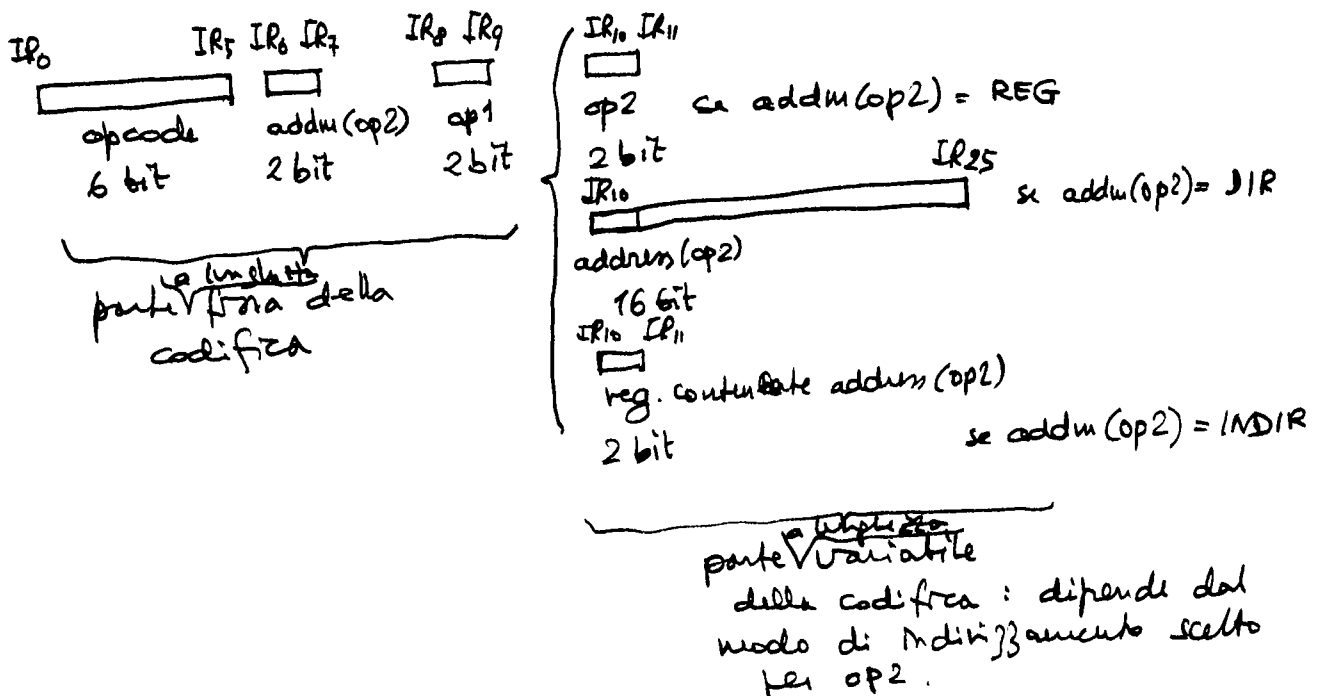 IR0 IR5 IR6 IR7 IR8 IR9
opcode addm(op2) op1
6 bit 2 bit 2 bit
parte a lunghezza fissa della
codifica
IR10 IR11
op2 se addm(op2) = REG
2 bit
IR10 IR25
se addm(op2) = DIR
address(op2)
16 bit
IR10 IR11
reg. contenente address(op2)
2 bit se addm(op2) = INDIR
parte a lunghezza variabile
della codifica : dipende dal
modo di indirizzamento scelto
per op2.